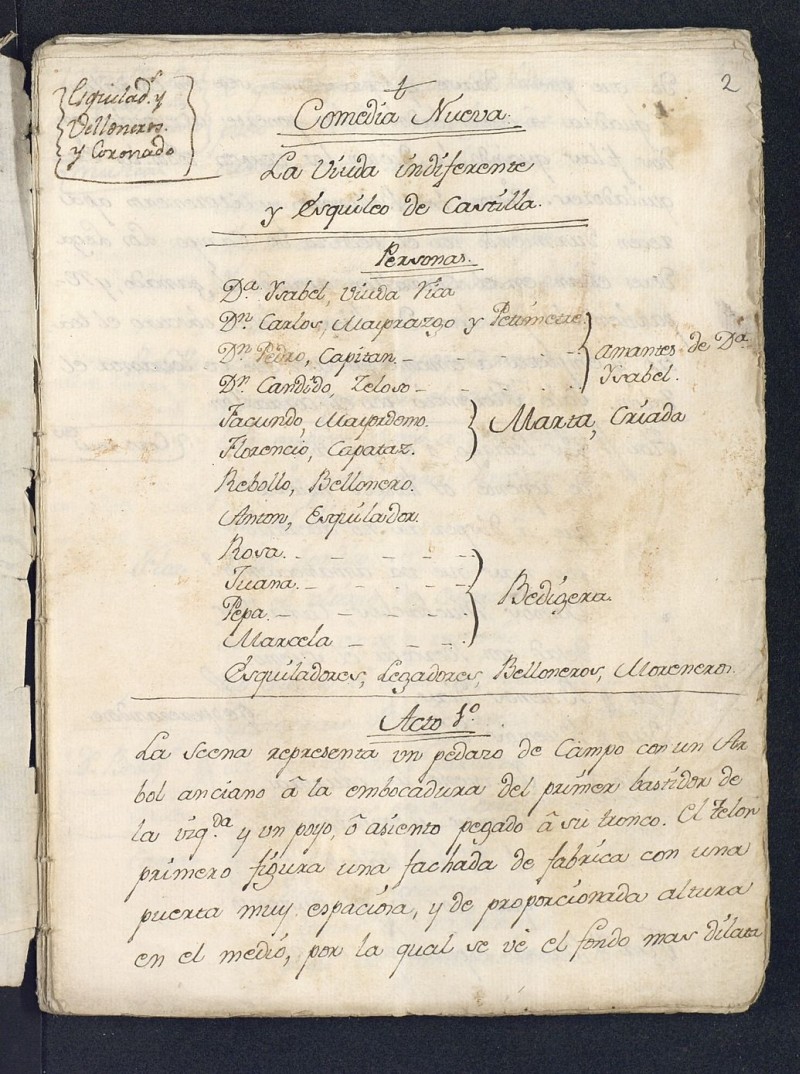 2
Esquilad.s y
Velloneros.
y Coronado
Comedia Nueva.
La Viuda indiferente
y Esquileo de Castilla.
Personas.
D.a Ysabel, Viuda Rica
D.n Carlos, Mayorazgo y Petimetre.
D.n Pedro, Capitan.
D.n Candido, Zeloso
amantes de D.a
Ysabel.
Facundo, Mayordomo.
Florencio, Capataz.
Marta, Criada
Rebollo, Bellonero.
Anton, Esquilador.
Rosa.
Juana.
Pepa.
Marcela
Bedigera.
Esquiladores, Legadores, Belloneros, Moreneros.
Acto 1.o
La Scena representa un pedazo de Campo con un Ar
bol anciano â la embocadura del primer bastidor de
la izq.da y un poyo, ô asiento pegado â su tronco. El Telon
primero figura una fachada de fabrica con una
puerta muy espaciosa, y de proporcionada altura
en el medio, por la qual se vè el fondo mas dilata